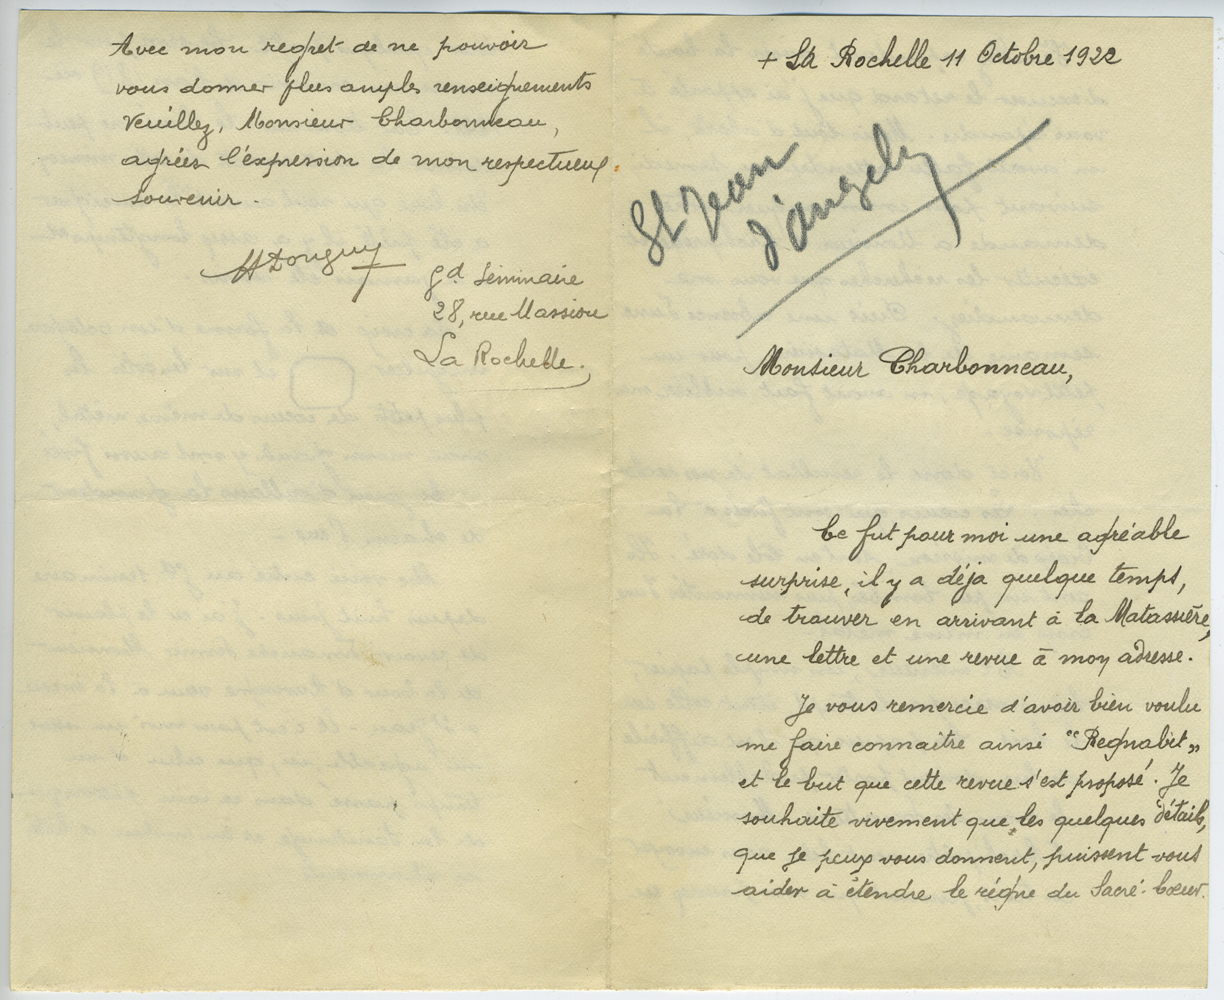 + La Rochelle 11 Octobre 1922
St Jean
d'angely
Monsieur Charbonneau,
Ce fut pour moi une agréable
surprise, il y a déja quelque temps,
de trouver en arrivant à la Matassière,
une lettre et une revue à moy adresse.
Je vous remercie d'avoir bien voulu
me faire connaitre ainsi "Regnabit"
et le but que cette revue s'est proposé. Je
souhaite vivement que les quelques détails,
que je peux vous donnent, puissent vous
aider à étendre le règne du Sacré-Cœur.
Avec mon regret de ne pouvoir
vous donner plus amples renseignements
Veuillez, Monsieur Charbonneau,
agréer l'expression de mon respectueux
souvenir.
Gd Séminaire
28, rue Massiou
La Rochelle.